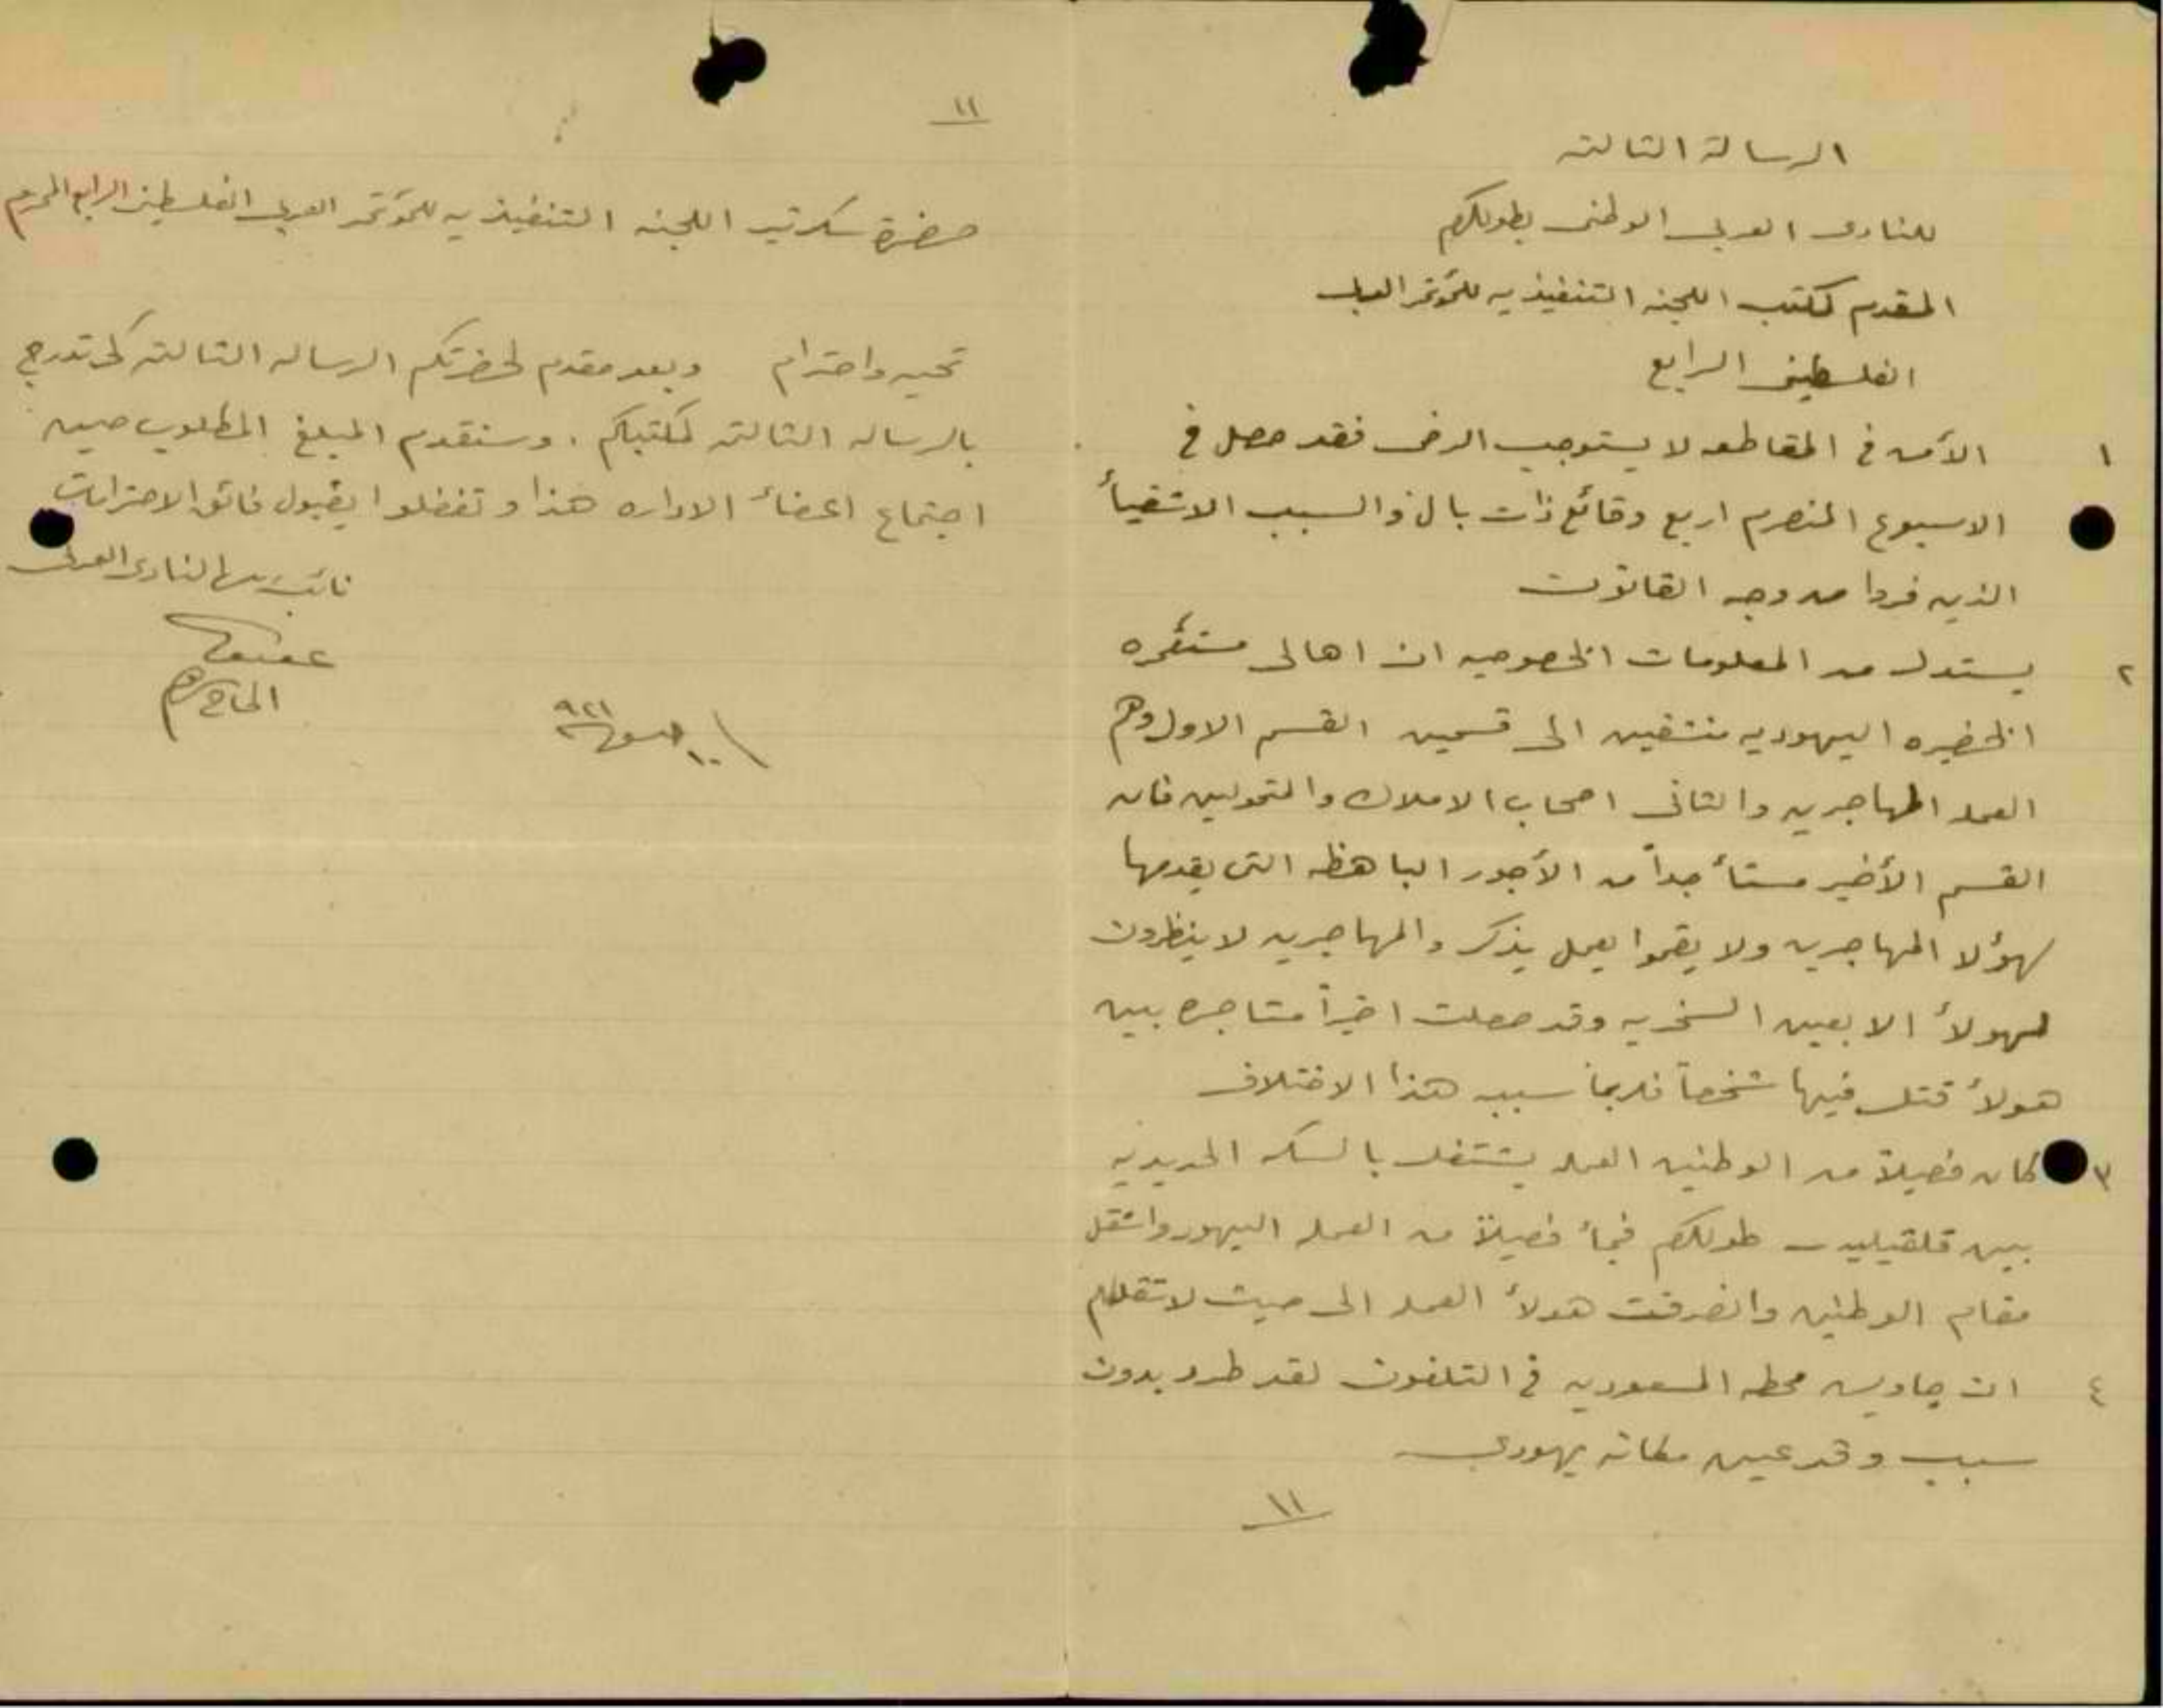 الرسالة الثالثه
للنادى العربى الوطنى بطولكرم
المقدم لمكتب اللجنه التنفيذيه للمؤتمر العربى
الفلسطينى الرابع
١ الأمن في المقاطعه لا يستوجب الرضى فقد حصل في
الاسبوع المنصرم اربع وقائع ذات بال والسبب الاشقيأ
الذين فروا من وجه القانون
٢ يستدل من المعلومات الخصوصيه ان اهالى مستعمره
الخضيره اليهوديه منشقين الى قسمين القسم الاول وهم
العمله المهاجرين والثانى اصحاب الاملاك والمتمولين فان
القسم الأخير مستأ جداً من الأجور الباهظه التى يقدمها
لهؤلا المهاجرين ولا يقموا بعمل يذكر والمهاجرين لا ينظرون
لهولأ الا بعين السخريه وقد حصلت اخيراً مشاجره بين
هولأ قتل فيها شخصاً فلربما سببه هذا الاختلاف
٣ كان فصيلاً من الوطنين العمله يشتغل بالسكه الحديديه
بين قلقيليه طولكرم فجأ فصيلاً من العمله اليهود واشتغل
مقام الوطنين وانصرفت هولأ العمله الى حيث لا
٤ ان جاويس محطه المسعوديه في التلفون لقد طرد بدون
سبب وقد عين مكانه يهودى
١١
١١
حضرة سكرتير اللجنه التنفيذيه للمؤتمر العربى الفلسطينى الرابع المحترم
تحيه واحترام وبعد مقدم لحضرتكم الرساله الثالثه كى تدرج
بالرساله الثالثه لمكتبكم. وسنقدم المبلغ المطلوب حين
اجتماع اعضأ الاداره هذا وتفضلوا بقبول فائق الاحترامات
نائب رئيس النادى العربى
الحاج ابرهيم
١٠ ٩٢١